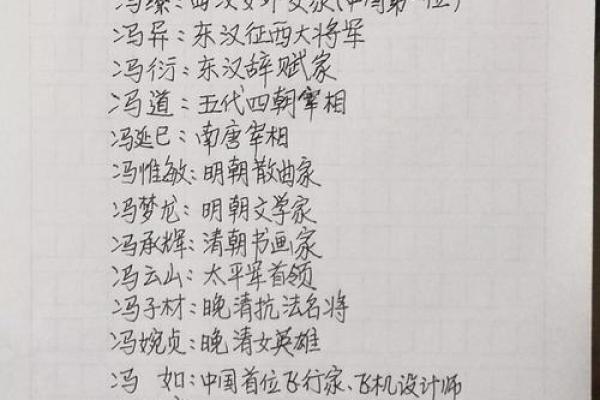 冯嫽：西汉女外交家(中国第一位)
冯异：东汉征西大将军
冯衍：东汉辞赋家
冯道：五代四朝宰相
冯延巳：南唐宰相
冯惟敏：明朝散曲家
冯梦龙：明朝文学家
冯承辉：清朝书画家
冯云山：太平军首领
冯子材：晚清抗法名将
冯婉贞：晚清女英雄
冯 如：中国首位飞行家、飞机设计师